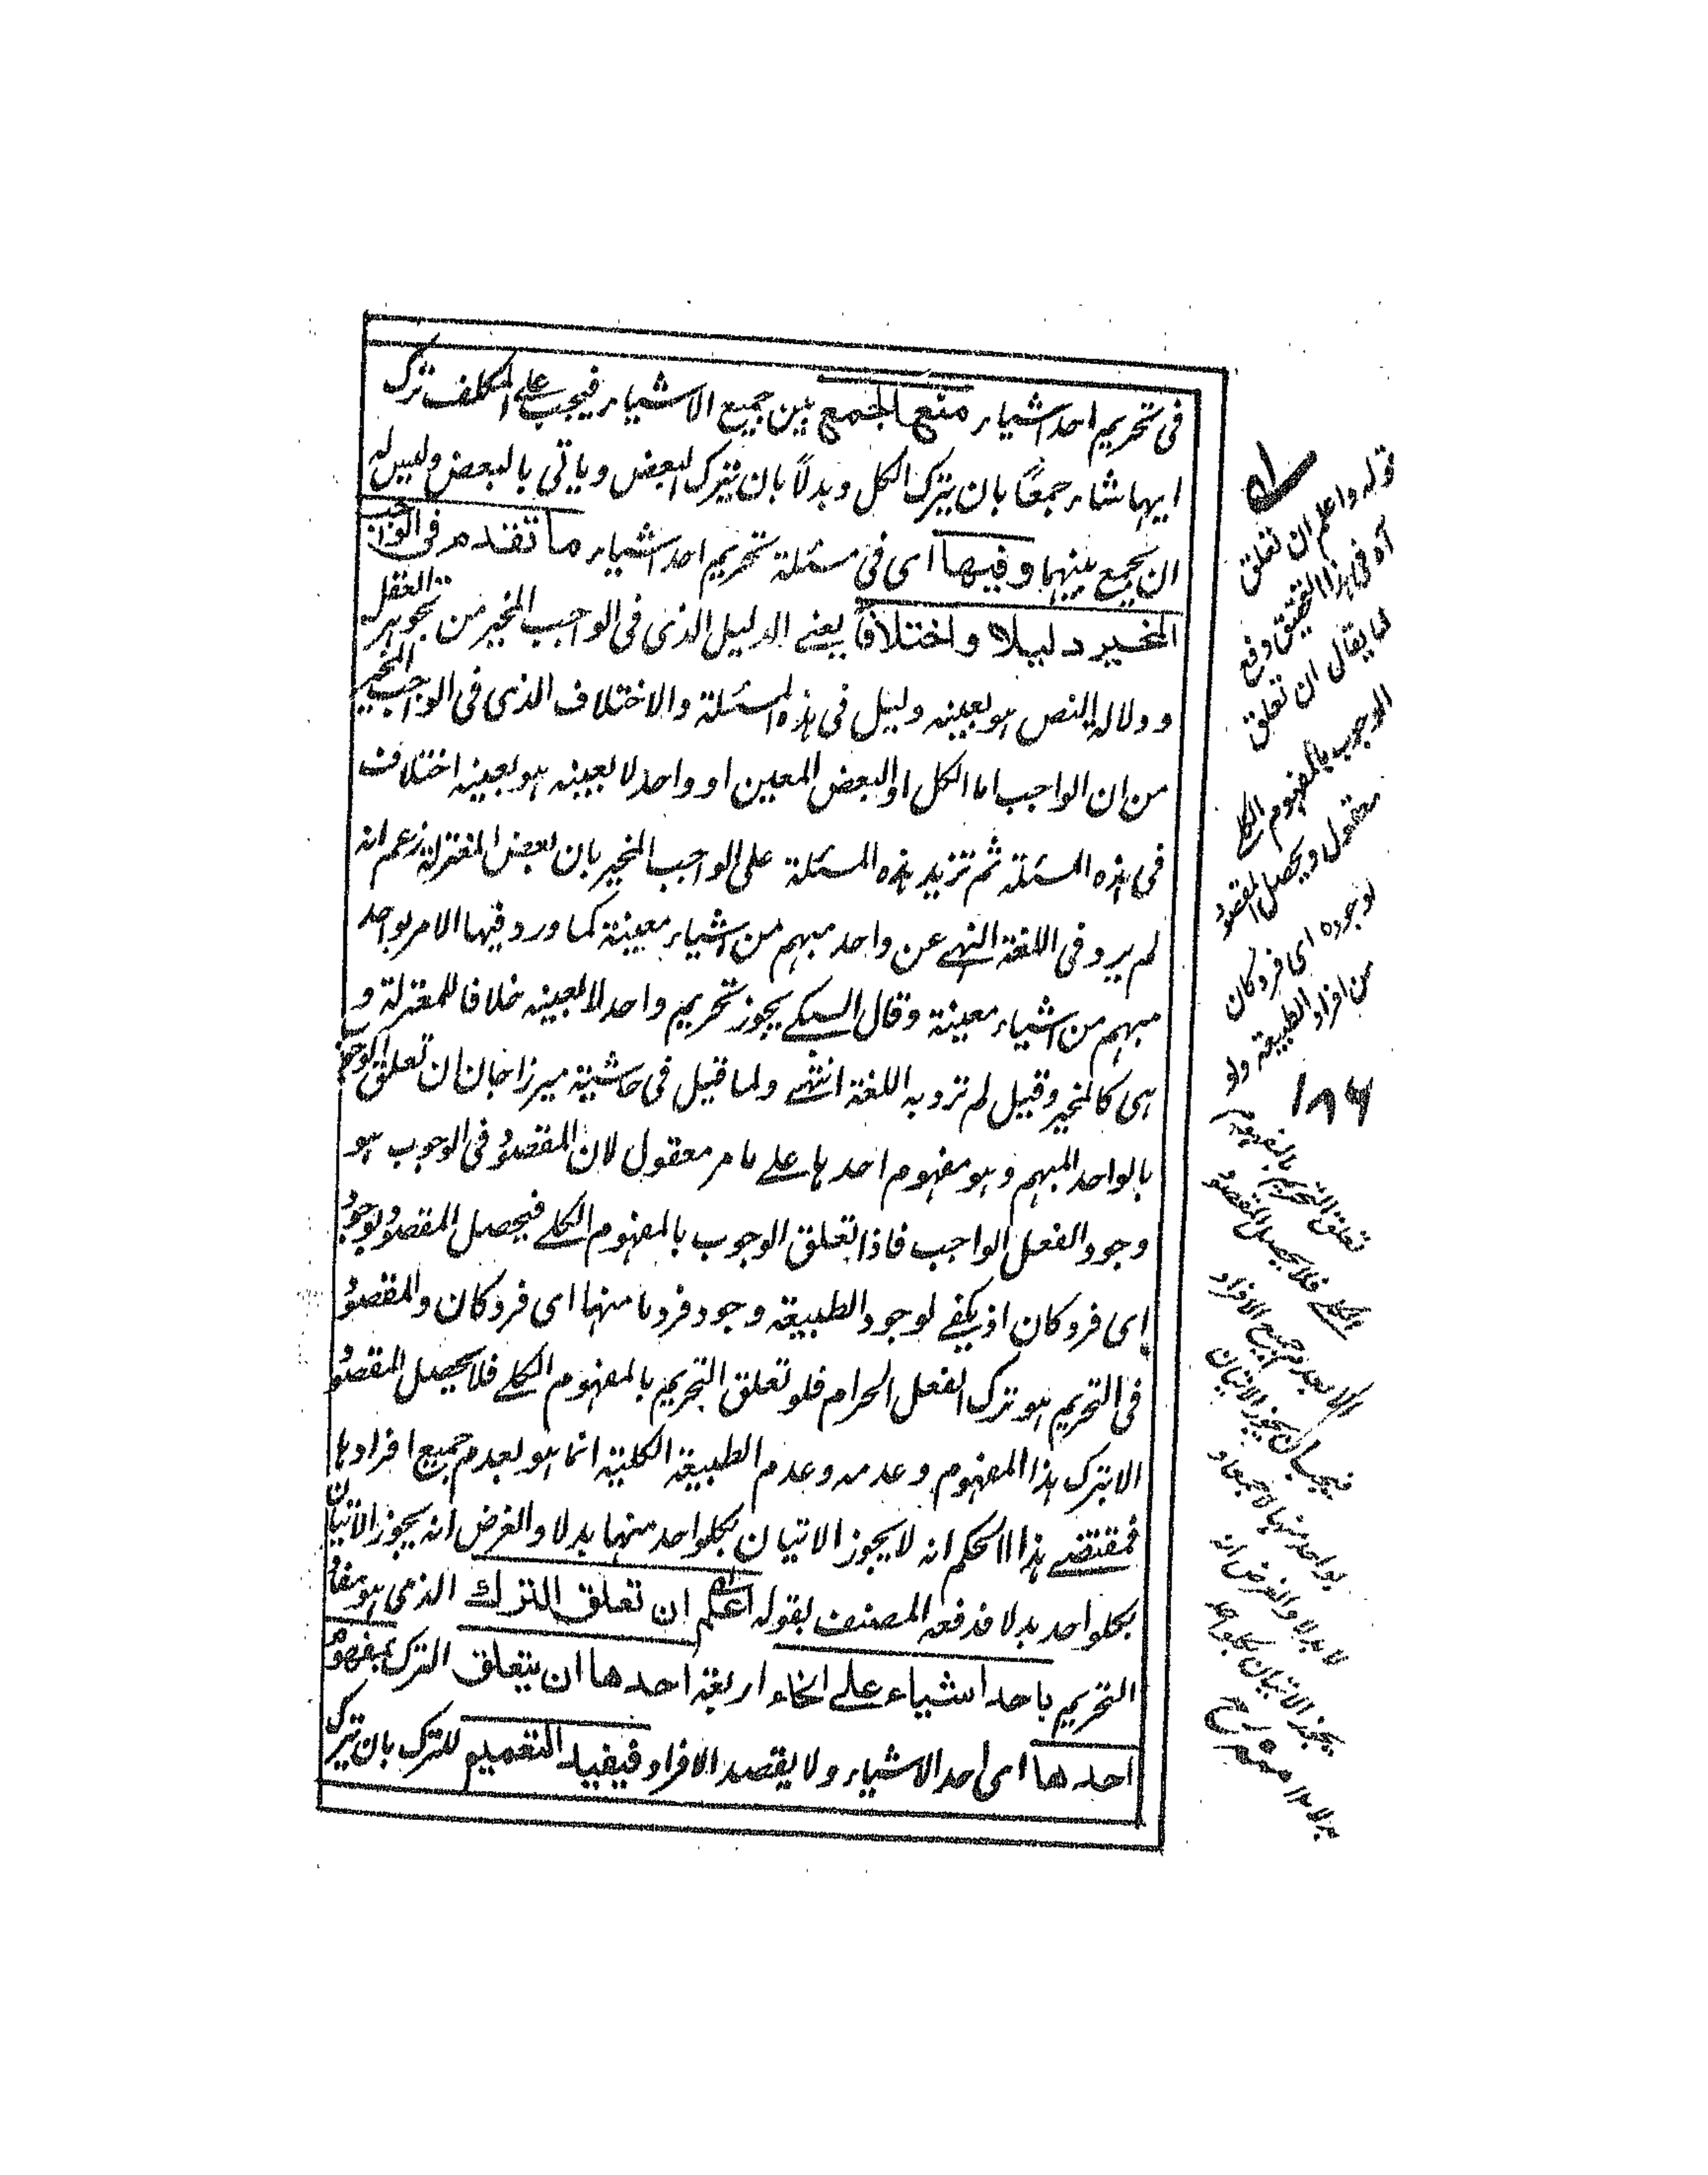 فى تحريم احد اشياء منها الجمع بين جميع الاشياء فيجب على المكلف ترك
ايها شاء جمعًا بان يترك الكل وبدلًا بان يترك البعض وياتى بالبعض وليس له
ان يجمع بينهما وفيها اى فى مسئلة تحريم احد اشياء ما تقدم فى الواجب
المخير دليلا واختلافا يعنے الدليل الذى فى الواجب المخير من تجويز العقل
ودلالة النص هو بعينه دليل فى هذه المسئلة والاختلاف الذى فى الواجب المخير
من ان الواجب اما الكل او البعض المعين او واحد لا بعينه هو بعينه اختلاف
فى هذه المسئلة ثم تزيد هذه المسئلة على الواجب المخير بان بعض المعتزلة زعم انه
لم يرد فى اللغة النهے عن واحد مبهم من اشياء معينة كما ورد فيها الامر بواحد
مبهم من اشياء معينة وقال السبكے يجوز تحريم واحد لا بعينه خلافا للمعتزلة و
هى كالمخير وقيل لم ترد به اللغة انتهے ولما قيل فى حاشية ميرزا جان ان تعلق الوجوب
بالواحد المبهم وهو مفهوم احدها علے ما مر معقول لان المقصود فى الوجوب هو
وجود الفعل الواجب فاذا تعلق الوجوب بالمفهوم الكلے فيحصل المقصود بوجود
اى فرد كان اذ يكفے لوجود الطبيعة وجود فرد ما منها اى فرد كان والمقصود
فى التحريم هو ترك الفعل الحرام فلو تعلق التحريم بالمفهوم الكلے فلا يحصل المقصود
الا بترك هذا المفهوم وعدمه وعدم الطبيعة الكلية انما هو بعدم جميع افرادها
فمقتضے هذا الحكم انه لا يجوز الاتيان بكلواحد منها بدلا والغرض انه يجوز الاتيان
بكلواحد بدلا فدفعه المصنف بقوله اعلم ان تعلق الترك الذى هو مفاد
التحريم باحد اشياء علے انحاء اربعة احدها ان يتعلق الترك بمفهوم
احدها اى احد الاشياء ولا يقصد الافراد فيفيد التعميم للترك بان يترك
قوله واعلم ان تعلق
آه فى هذا التحقيق دفع
لما يقال ان تعلق
الوجوب بالمفهوم الكلے
معقول ويحصل المقصود
لوجوده اى فرد كان
من افراد الطبيعة ولو
١٨٦
تعلق التحريم بالمفهوم
الكلے فلا يحصل المقصود
الا بعدم جميع الافراد
فيجب ان يجوز الاتيان
بواحد منها لا جمعا و
لا بدلا والغرض انه
يجوز الاتيان بكلواحد
بدلا ١٢